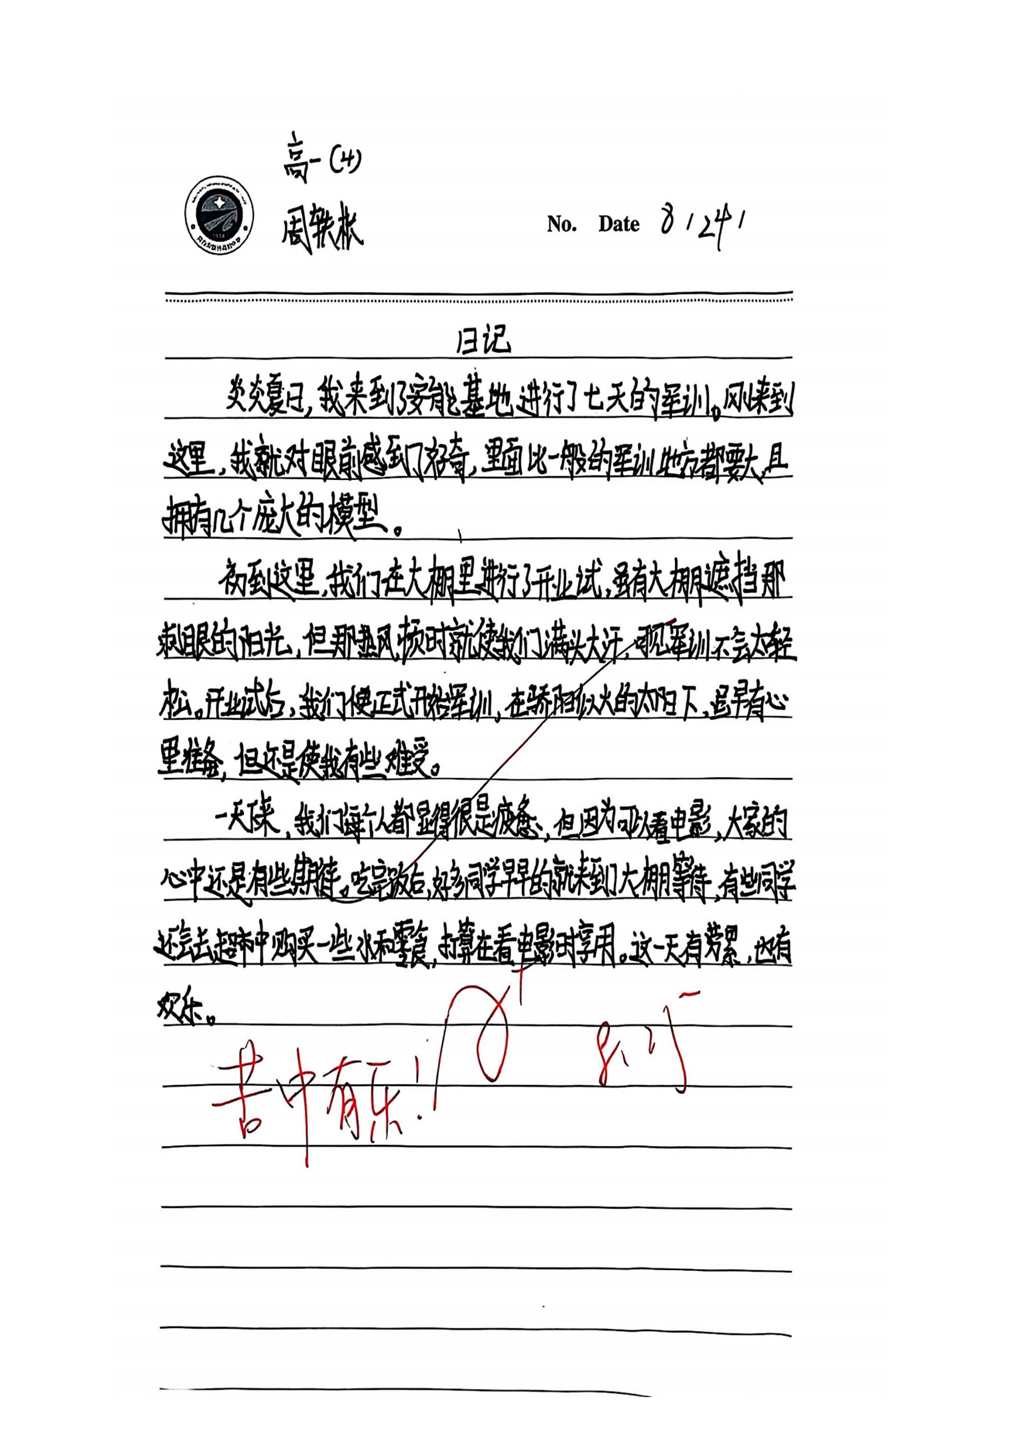 高一(4)
周轶彬
No. Date 8/24/
日记
炎炎夏日,我来到了安能基地进行了七天的军训。刚来到
这里,我就对眼前感到了好奇,里面比一般的军训地方都要大,且
拥有几个庞大的模型。
初到这里,我们在大棚里进行了开业试,虽有大棚遮挡那
刺眼的阳光,但那热风顿时就使我们满头大汗,可见军训不会太轻
松。开业试后,我们便正式开始军训,在骄阳似火的太阳下,虽早有心
里准备,但还是使我有些难受。
一天下来,我们每个人都显得很是疲惫,但因为可以看电影,大家的
心中还是有些期待。吃完饭后,好多同学早早的就来到了大棚等待,有些同学
还会去超市中购买一些水和零食,打算在看电影时享用。这一天有劳累,也有
欢乐。
苦中有乐!
8.25